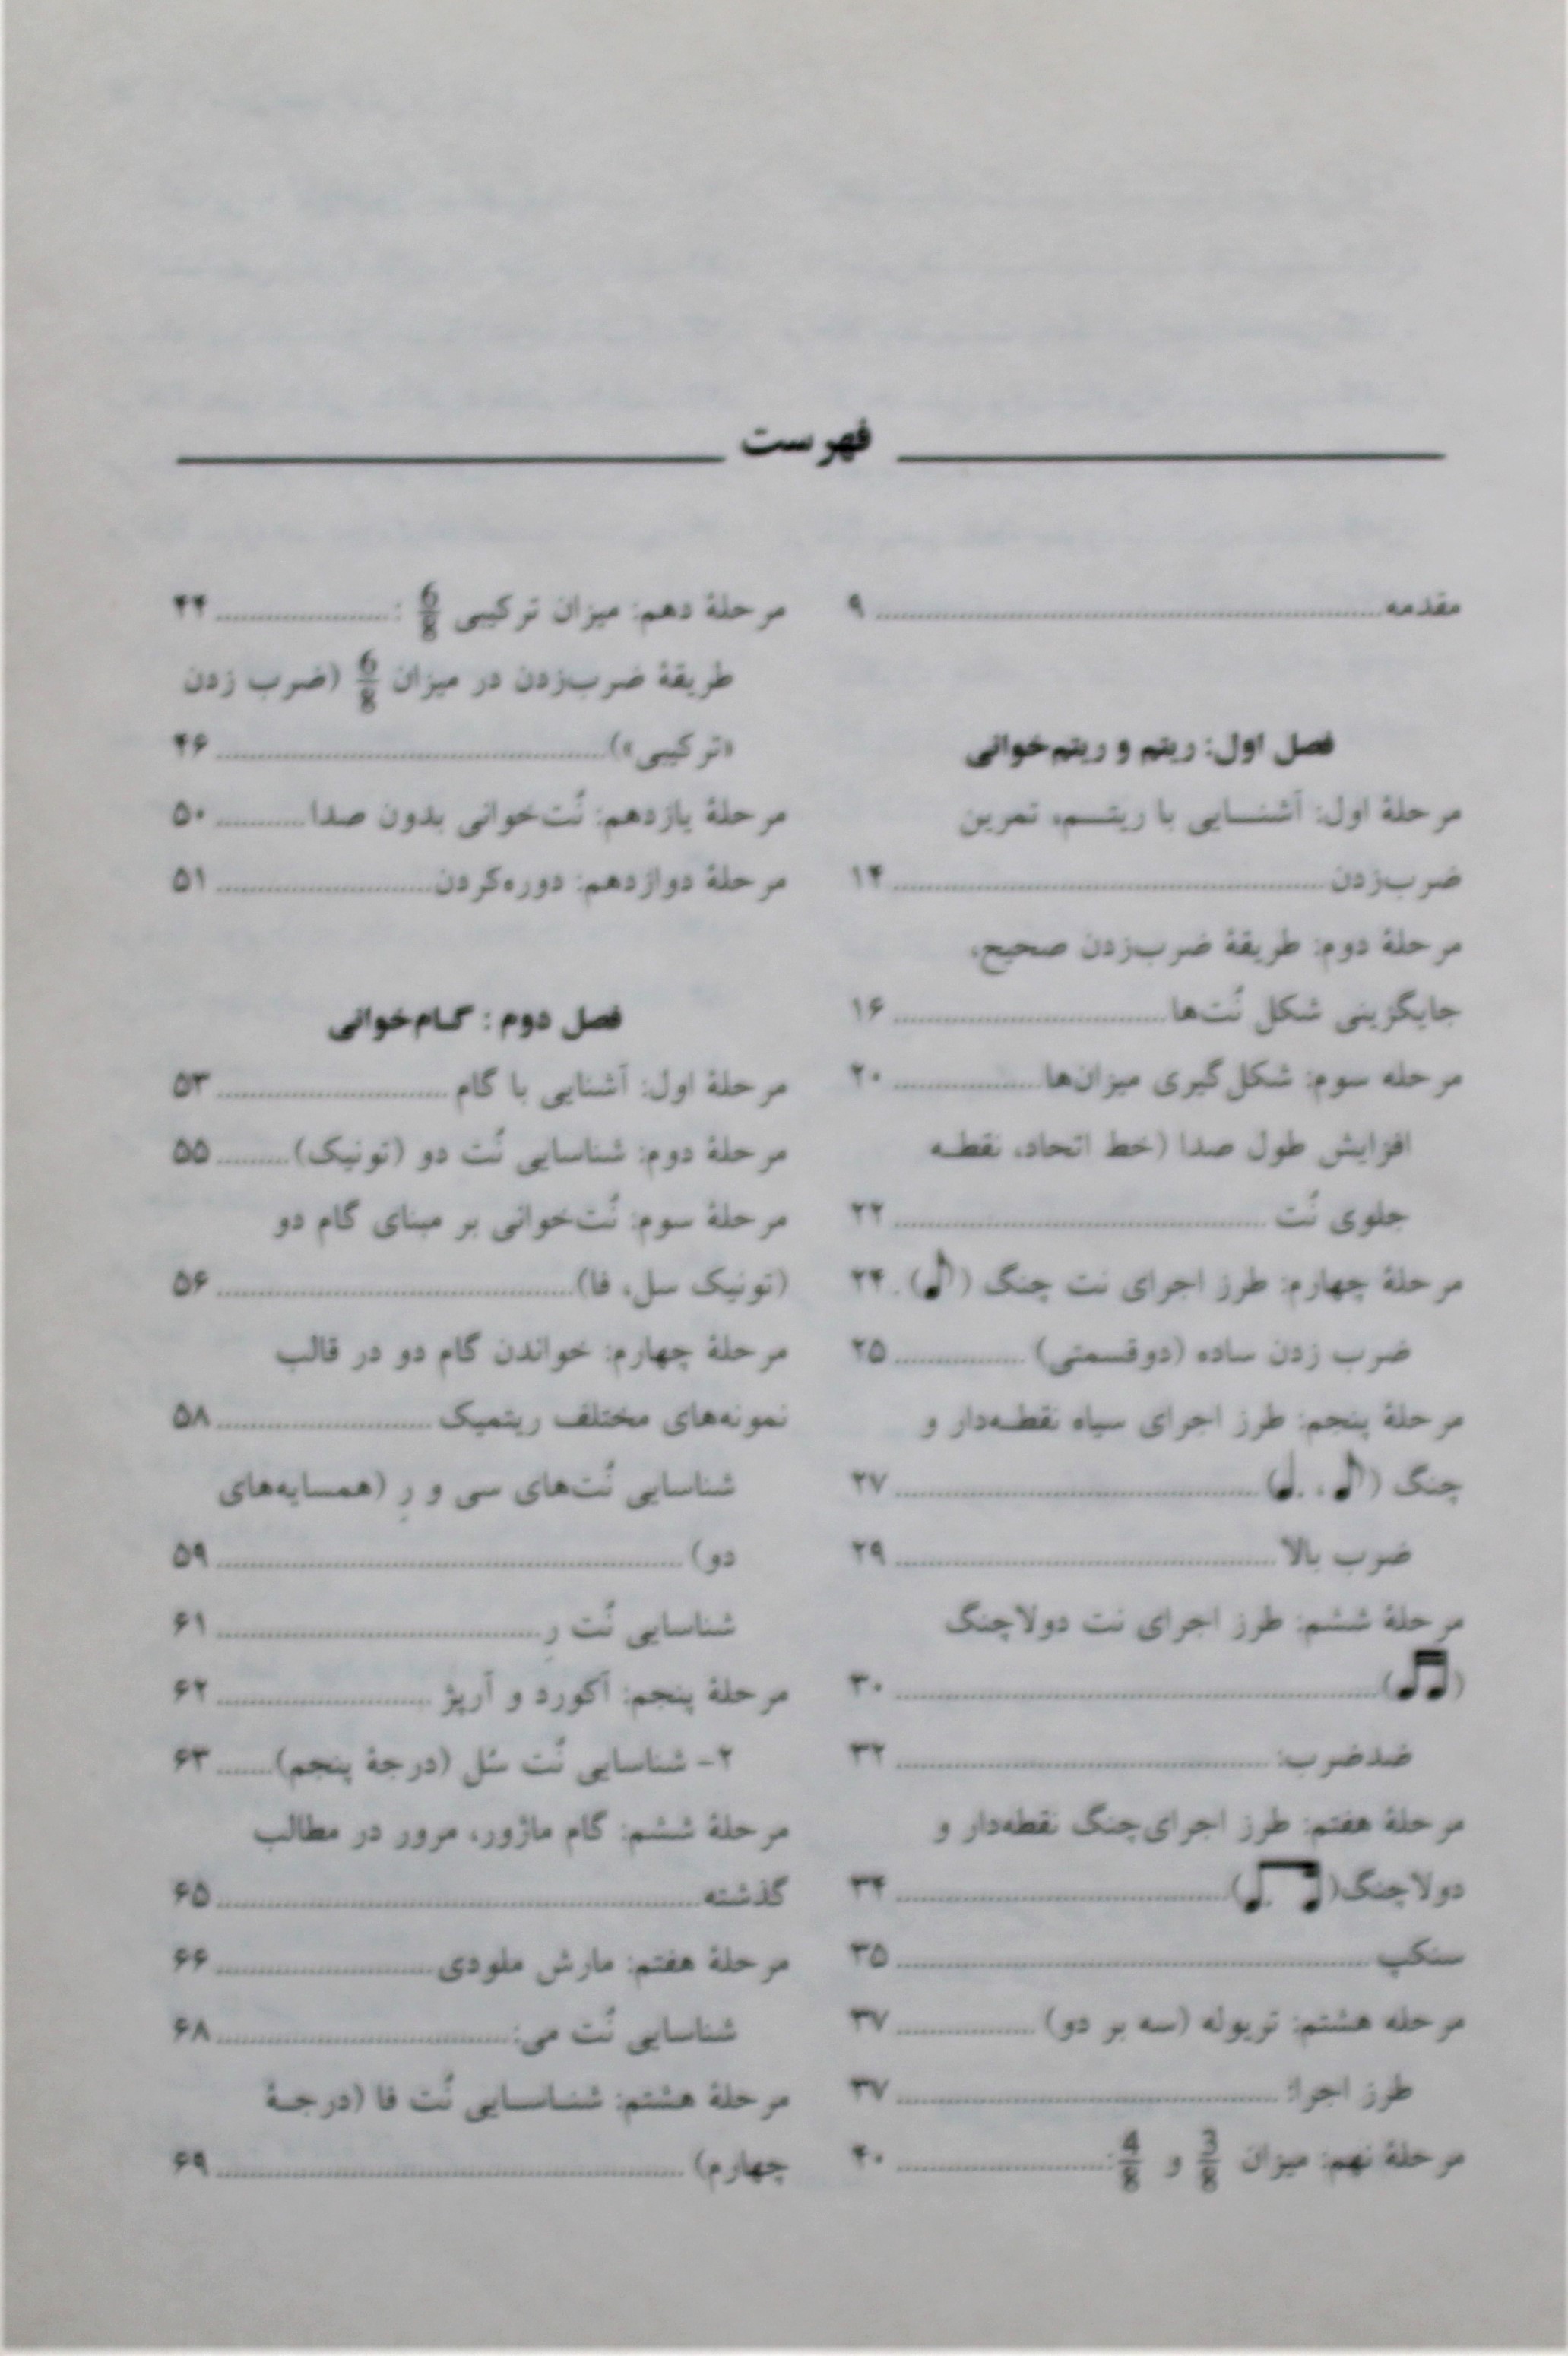 فهرست
مقدمه ........ ۹
فصل اول: ریتم و ریتم‌خوانی
مرحلهٔ اول: آشنـایی با ریتـم، تمرین
ضرب‌زدن ........ ۱۴
مرحلهٔ دوم: طریقهٔ ضرب‌زدن صحیح،
جایگزینی شکل نُت‌ها ........ ۱۶
مرحله سوم: شکل‌گیری میزان‌ها ........ ۲۰
افزایش طول صدا (خط اتحاد، نقطـه
جلوی نُت ........ ۲۲
مرحلهٔ چهارم: طرز اجرای نت چنگ (♪) . ۲۴
ضرب زدن ساده (دوقسمتی) ........ ۲۵
مرحلهٔ پنجم: طرز اجرای سیاه نقطـه‌دار و
چنگ (♪ ، .♩) ........ ۲۷
ضرب بالا ........ ۲۹
مرحلهٔ ششم: طرز اجرای نت دولاچنگ
(♬) ........ ۳۰
ضدضرب: ........ ۳۲
مرحلهٔ هفتم: طرز اجرای‌چنگ نقطه‌دار و
دولاچنگ(♫) ........ ۳۴
سنکپ ........ ۳۵
مرحله هشتم: تریوله (سه بر دو) ........ ۳۷
طرز اجرا: ........ ۳۷
مرحلهٔ نهم: میزان 3/8 و 4/8: ........ ۴۰
مرحلهٔ دهم: میزان ترکیبی 6/8 : ........ ۴۴
طریقهٔ ضرب‌زدن در میزان 6/8 (ضرب زدن
«ترکیبی») ........ ۴۶
مرحلهٔ یازدهم: نُت‌خوانی بدون صدا ........ ۵۰
مرحلهٔ دوازدهم: دوره‌کردن ........ ۵۱
فصل دوم : گـام‌خوانی
مرحلهٔ اول: آشنایی با گام ........ ۵۳
مرحلهٔ دوم: شناسایی نُت دو (تونیک) ........ ۵۵
مرحلهٔ سوم: نُت‌خوانی بر مبنای گام دو
(تونیک سل، فا) ........ ۵۶
مرحلهٔ چهارم: خواندن گام دو در قالب
نمونه‌های مختلف ریتمیک ........ ۵۸
شناسایی نُت‌های سی و رِ (همسایه‌های
دو) ........ ۵۹
شناسایی نُت رِ ........ ۶۱
مرحلهٔ پنجم: آکورد و آرپژ ........ ۶۲
۲- شناسایی نُت سُل (درجهٔ پنجم) ........ ۶۳
مرحلهٔ ششم: گام ماژور، مرور در مطالب
گذشته ........ ۶۵
مرحلهٔ هفتم: مارش ملودی ........ ۶۶
شناسایی نُت می: ........ ۶۸
مرحلهٔ هشتم: شنـاسـایی نُت فا (درجـهٔ
چهارم) ........ ۶۹